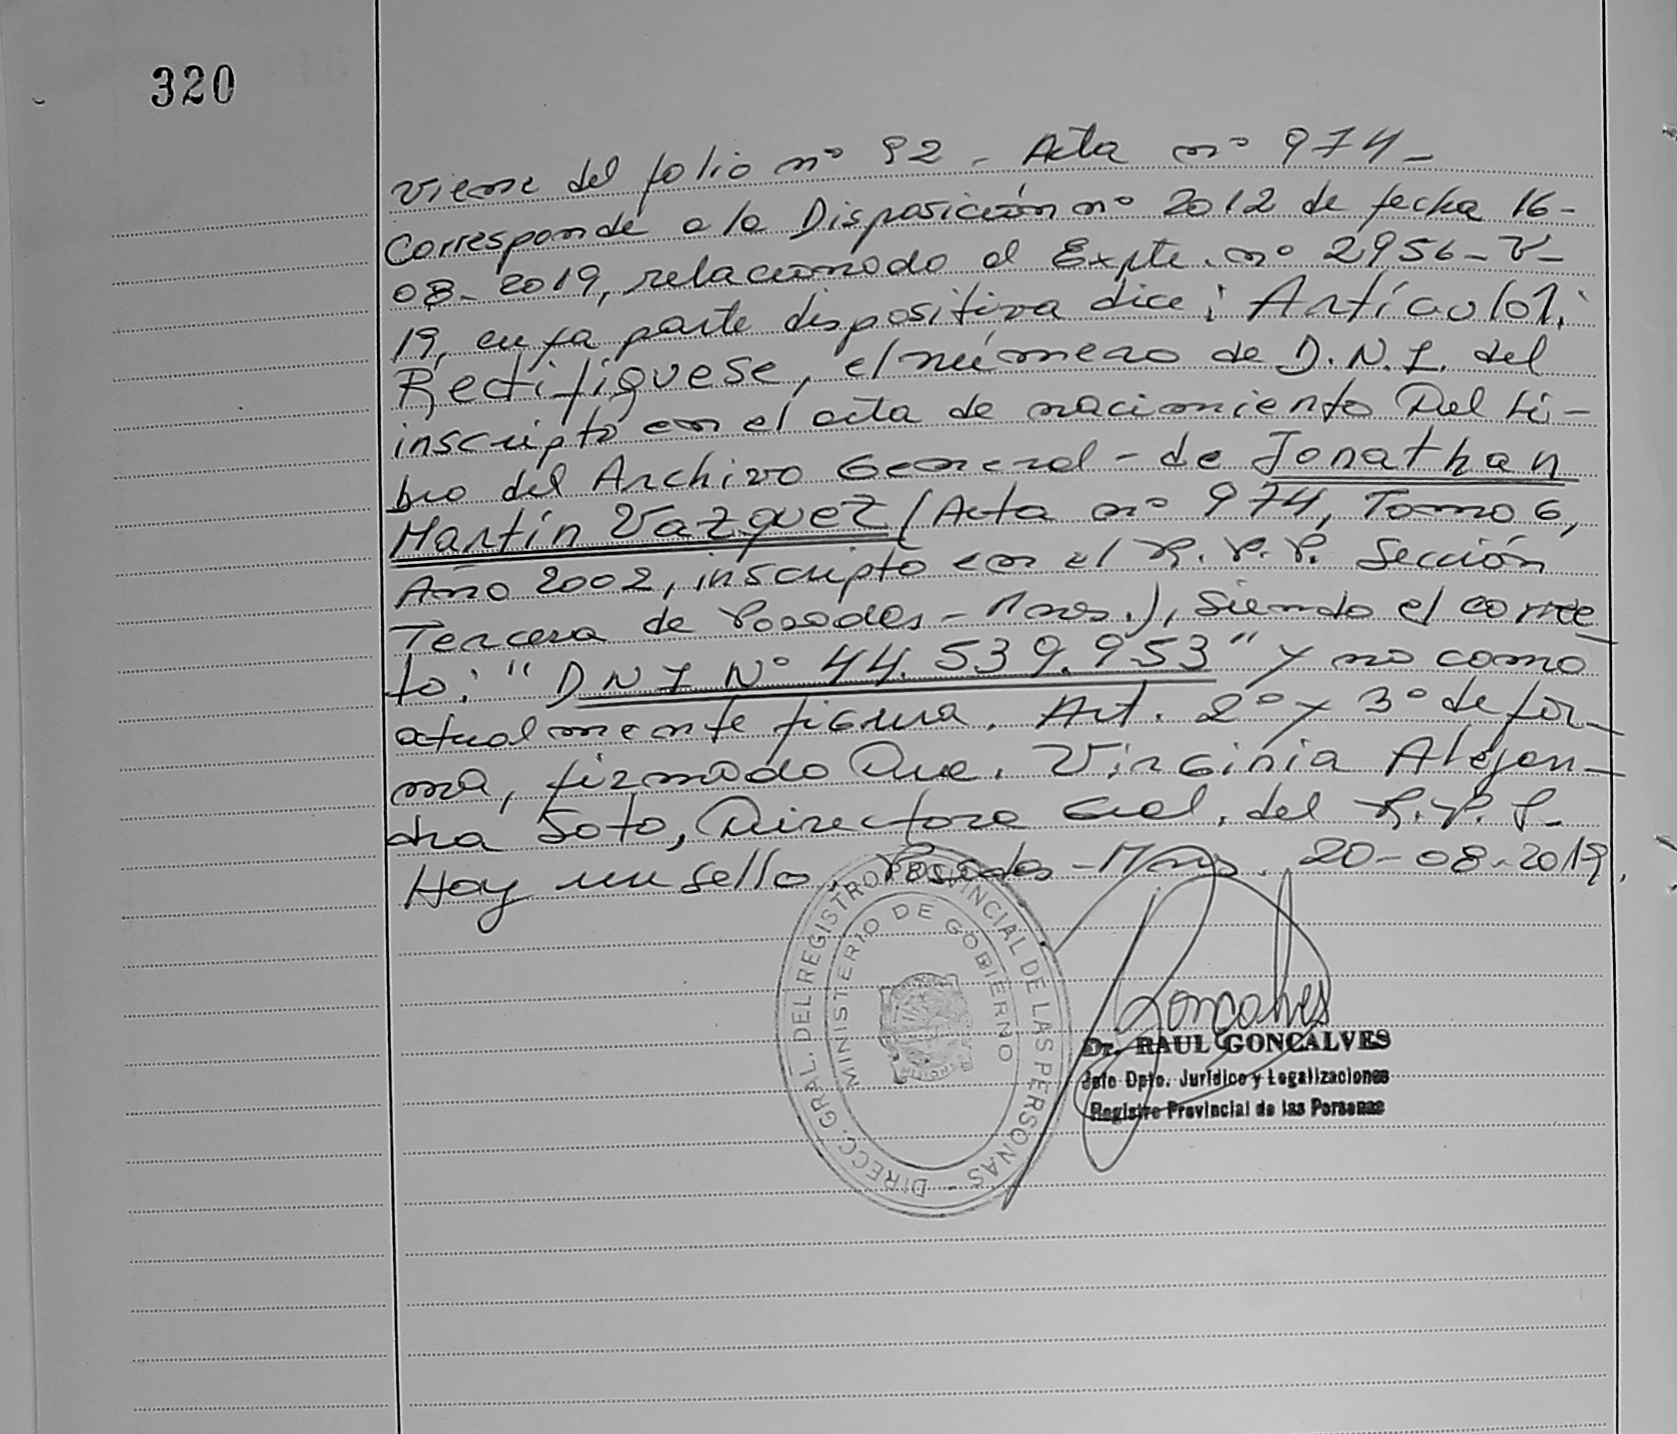 320
Viene del folio nº 92 - Acta nº 974 -
Corresponde a la Disposición nº 2012 de fecha 16-
08-2019, relacionado al Expte. nº 2956-V-
19, cuya parte dispositiva dice: Artículo 1:
Rectifíquese, el número de D.N.I. del
inscripto en el acta de nacimiento Del Li-
bro del Archivo General - de Jonathan
Martín Vazquez (Acta nº 974, Tomo 6,
Año 2002, inscripto en el R.P.P. Sección
Tercera de Posadas - Mnes.), siendo el corre
to: "DNI Nº 44.539.953" y no como
actualmente figura. Art. 2º y 3º de for-
ma, firmado Dra. Virginia Alejan-
dra Soto, Directora Gral. del R.P.P.
Hay un sello. Posadas - Mnes. 20-08-2019.
DIRECC. GRAL. DEL REGISTRO PROVINCIAL DE LAS PERSONAS -
MINISTERIO DE GOBIERNO
Goncalves
Dr. RAUL GONCALVES
Jefe Dpto. Jurídico y Legalizaciones
Registro Provincial de las Personas